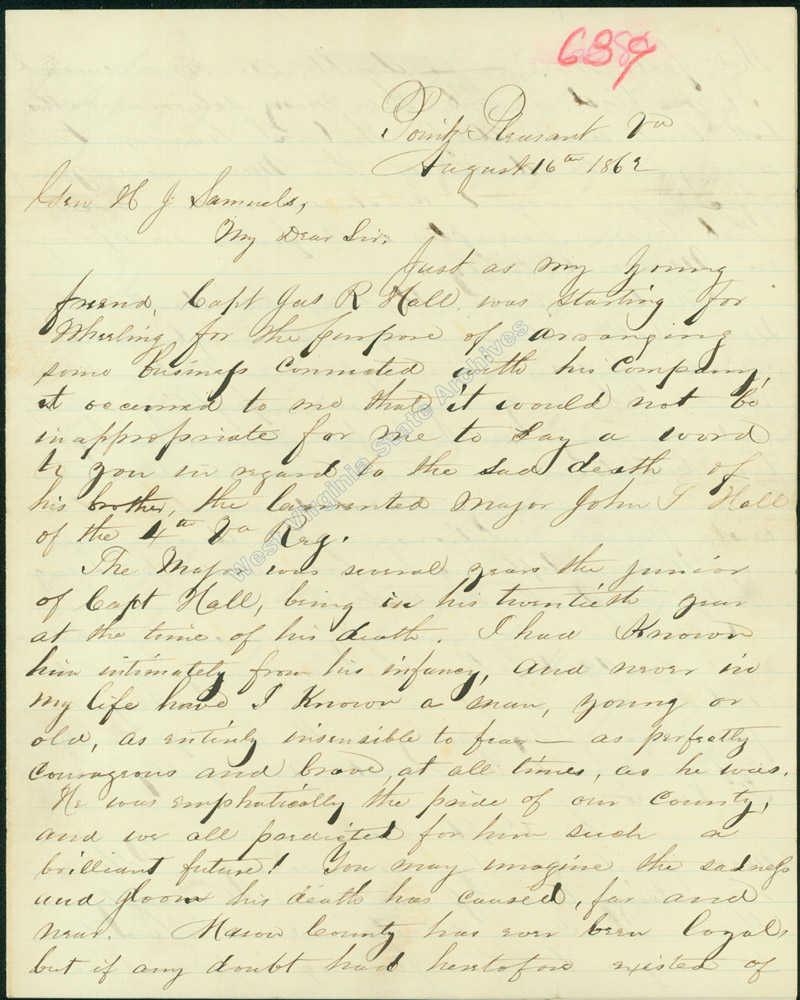 689
Point Pleasant Va
August 16th 1862
Gen H J Samuels,
My Dear Sir:
Just as my young
friend, Capt Jas R Hall was starting for
Wheeling for the purpose of arranging
some business connected with his company,
it occurred to me that it would not be
inappropriate for me to say a word
to you in regard to the sad death of
his brother, the lamented Major John T Hall
of the 4th Va Reg.
The Major was several years the junior
of Capt Hall, being in his twentieth year
at the time of his death. I had Known
him intimately from his infancy, and never in
my life have I Known a man, young or
old, as entirely insensible to fear — as perfectly
courageous and brave, at all times, as he was.
He was emphatically the pride of our County,
and we all predicted for him such a
brilliant future! You may imagine the sadness
and gloom his death has caused, far and
near. Mason County has ever been loyal,
but if any doubt had heretofore existed of
West Virginia State Archives